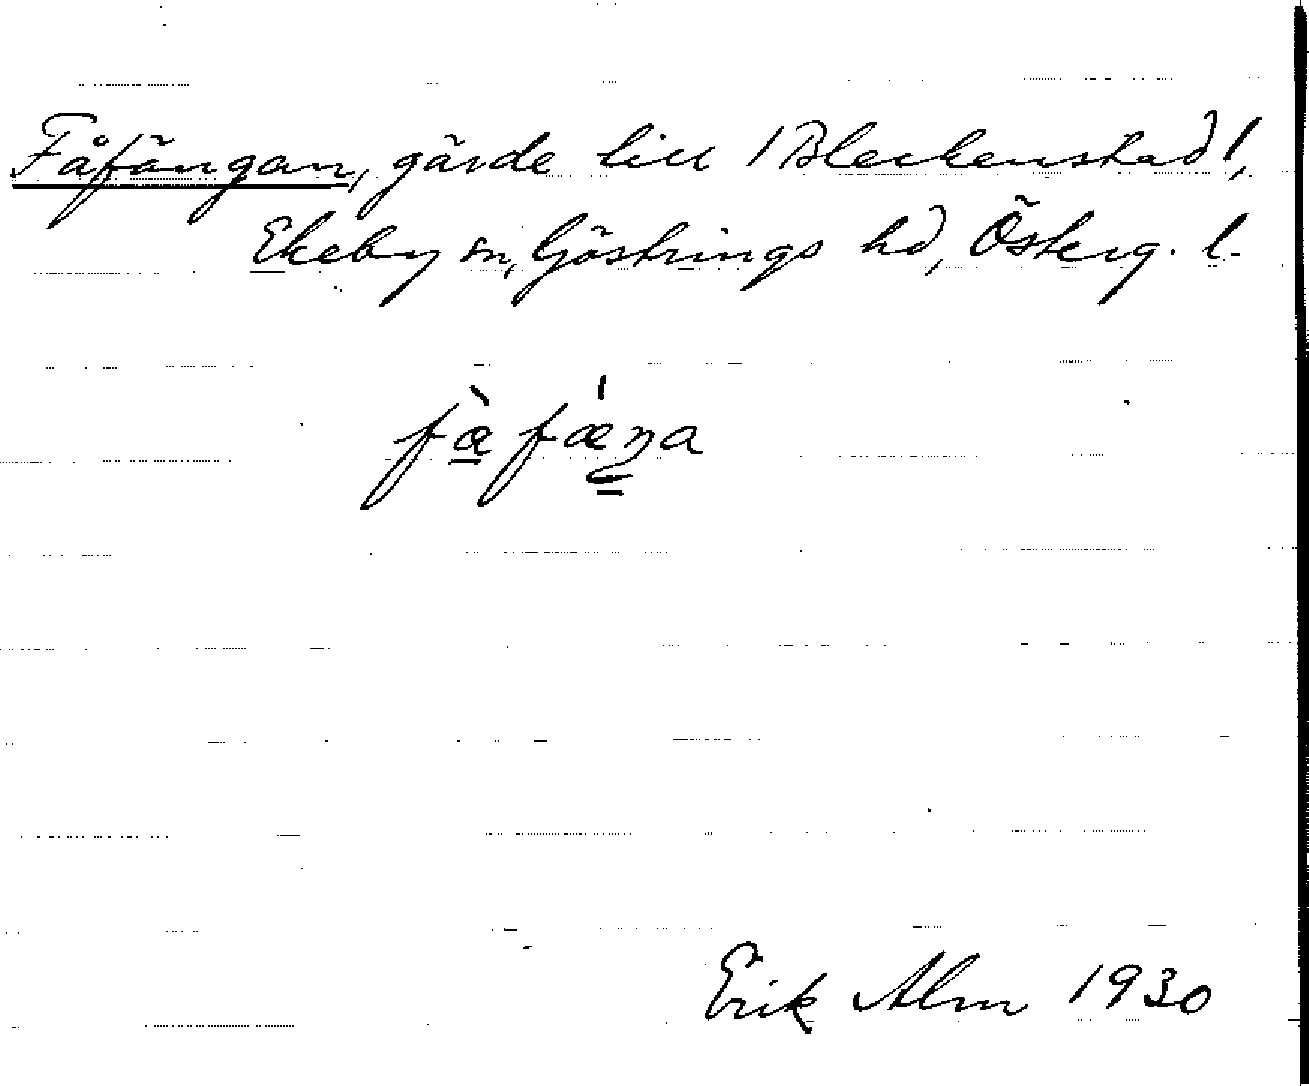 Fåfängan, gärde till /Bleckenstad/,
Ekeby sn, Göstrings hd, Österg. l.
fàfæ̀ŋa
Erik Alm 1930